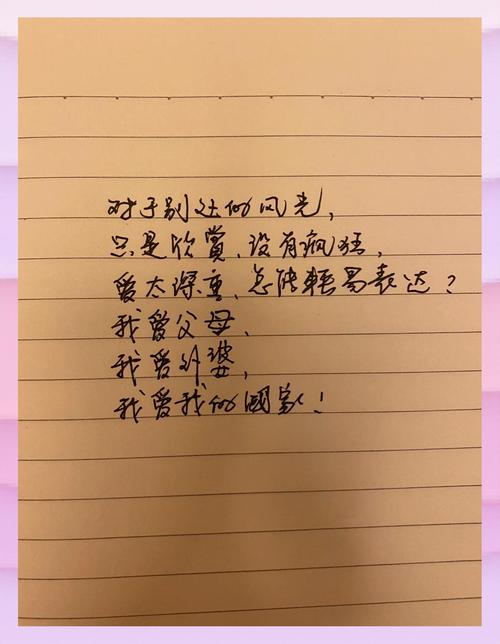 对于别处的风光,
只是欣賞,没有疯狂,
爱太深重、怎能輕易表达?
我爱父母,
我爱外婆,
我爱我的國家!